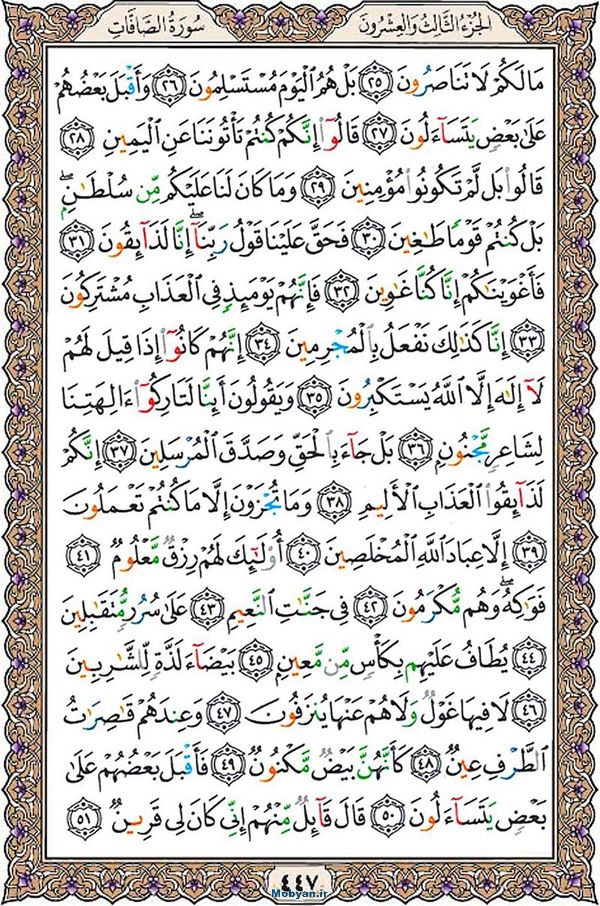 الجزء الثالث والعشرون
سورة الصافات
مَا لَكُمْ لَا تَنَاصَرُونَ ٢٥ بَلْ هُمُ ٱلْيَوْمَ مُسْتَسْلِمُونَ ٢٦ وَأَقْبَلَ بَعْضُهُمْ
عَلَىٰ بَعْضٍ يَتَسَآءَلُونَ ٢٧ قَالُوٓا۟ إِنَّكُمْ كُنتُمْ تَأْتُونَنَا عَنِ ٱلْيَمِينِ ٢٨
قَالُوا۟ بَل لَّمْ تَكُونُوا۟ مُؤْمِنِينَ ٢٩ وَمَا كَانَ لَنَا عَلَيْكُم مِّن سُلْطَٰنٍۭ ۖ
بَلْ كُنتُمْ قَوْمًا طَٰغِينَ ٣٠ فَحَقَّ عَلَيْنَا قَوْلُ رَبِّنَآ ۖ إِنَّا لَذَآئِقُونَ ٣١
فَأَغْوَيْنَٰكُمْ إِنَّا كُنَّا غَٰوِينَ ٣٢ فَإِنَّهُمْ يَوْمَئِذٍ فِى ٱلْعَذَابِ مُشْتَرِكُونَ
٣٣ إِنَّا كَذَٰلِكَ نَفْعَلُ بِٱلْمُجْرِمِينَ ٣٤ إِنَّهُمْ كَانُوٓا۟ إِذَا قِيلَ لَهُمْ
لَآ إِلَٰهَ إِلَّا ٱللَّهُ يَسْتَكْبِرُونَ ٣٥ وَيَقُولُونَ أَئِنَّا لَتَارِكُوٓا۟ ءَالِهَتِنَا
لِشَاعِرٍ مَّجْنُونٍۭ ٣٦ بَلْ جَآءَ بِٱلْحَقِّ وَصَدَّقَ ٱلْمُرْسَلِينَ ٣٧ إِنَّكُمْ
لَذَآئِقُوا۟ ٱلْعَذَابِ ٱلْأَلِيمِ ٣٨ وَمَا تُجْزَوْنَ إِلَّا مَا كُنتُمْ تَعْمَلُونَ
٣٩ إِلَّا عِبَادَ ٱللَّهِ ٱلْمُخْلَصِينَ ٤٠ أُو۟لَٰٓئِكَ لَهُمْ رِزْقٌ مَّعْلُومٌ ٤١
فَوَٰكِهُ ۖ وَهُم مُّكْرَمُونَ ٤٢ فِى جَنَّٰتِ ٱلنَّعِيمِ ٤٣ عَلَىٰ سُرُرٍ مُّتَقَٰبِلِينَ
٤٤ يُطَافُ عَلَيْهِم بِكَأْسٍ مِّن مَّعِينٍۭ ٤٥ بَيْضَآءَ لَذَّةٍ لِّلشَّٰرِبِينَ
٤٦ لَا فِيهَا غَوْلٌ وَلَا هُمْ عَنْهَا يُنزَفُونَ ٤٧ وَعِندَهُمْ قَٰصِرَٰتُ
ٱلطَّرْفِ عِينٌ ٤٨ كَأَنَّهُنَّ بَيْضٌ مَّكْنُونٌ ٤٩ فَأَقْبَلَ بَعْضُهُمْ عَلَىٰ
بَعْضٍ يَتَسَآءَلُونَ ٥٠ قَالَ قَآئِلٌ مِّنْهُمْ إِنِّى كَانَ لِى قَرِينٌ ٥١
٤٤٧
Mobyan.ir